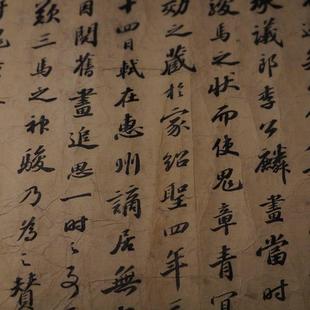 承議郎李公麟畫當時
駿馬之狀而使鬼章青宜
効之藏於家紹聖四年三
十四日軾在惠州謫居無
因閱舊畫追思一時之
歎三馬之神駿乃為之贊